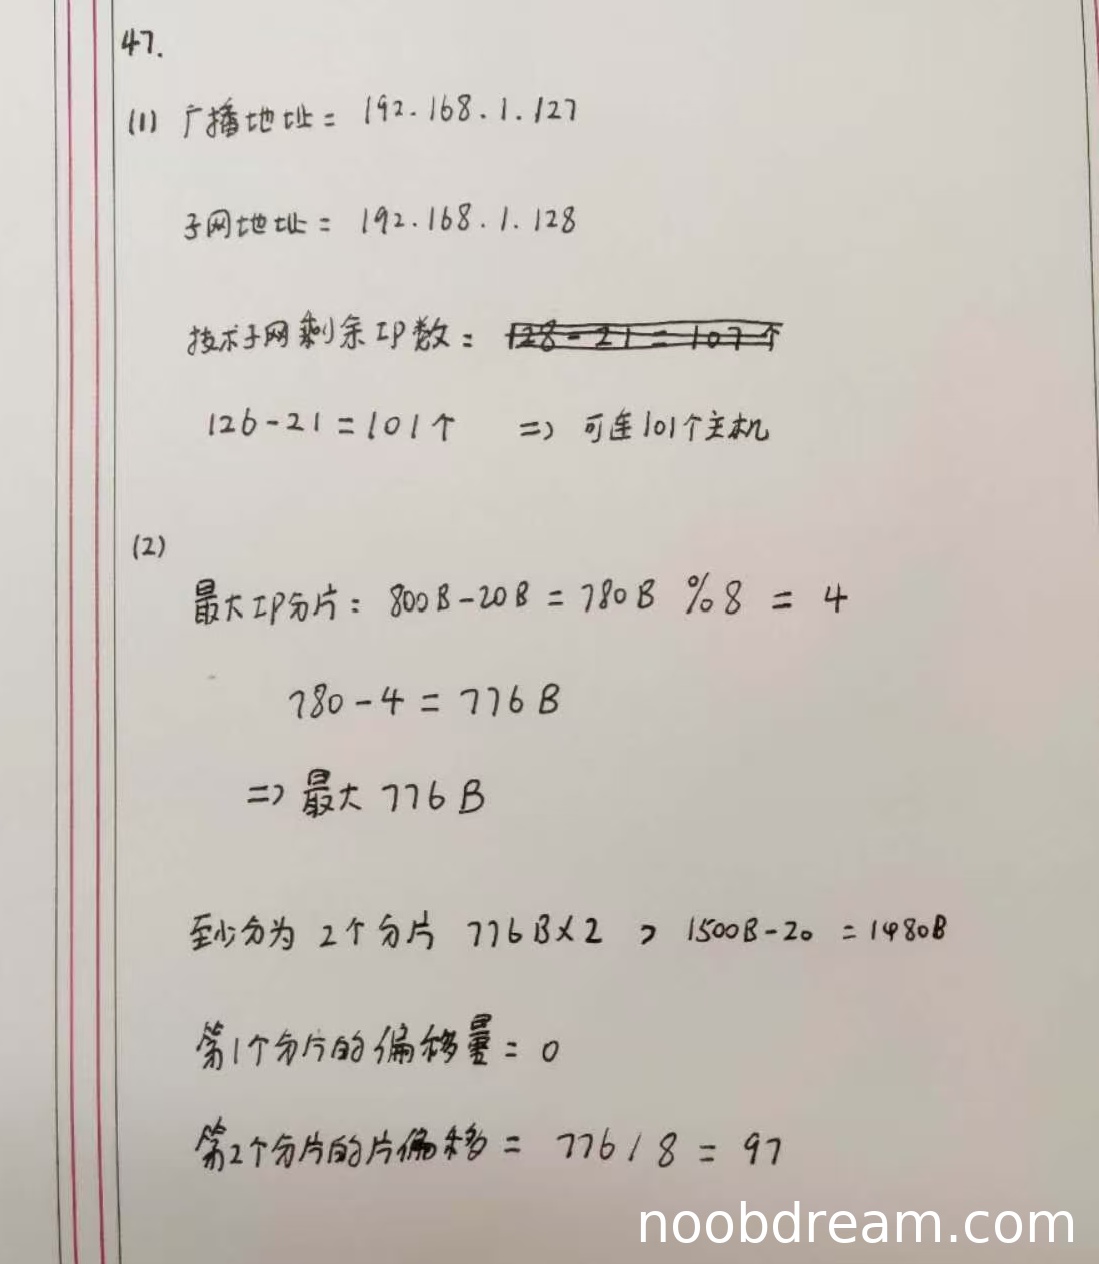 47.
(1) 广播地址 = 192.168.1.127
子网地址 = 192.168.1.128
技术子网剩余IP数: 128-21=107个
126-21=101个 => 可连101个主机
(2)
最大IP分片: 800B-20B = 780B %8 = 4
780-4 = 776B
=> 最大 776B
至少分为 2个分片 776B×2 > 1500B-20 = 1480B
第1个分片的偏移量 = 0
第2个分片的片偏移 = 776/8 = 97
noobdream.com